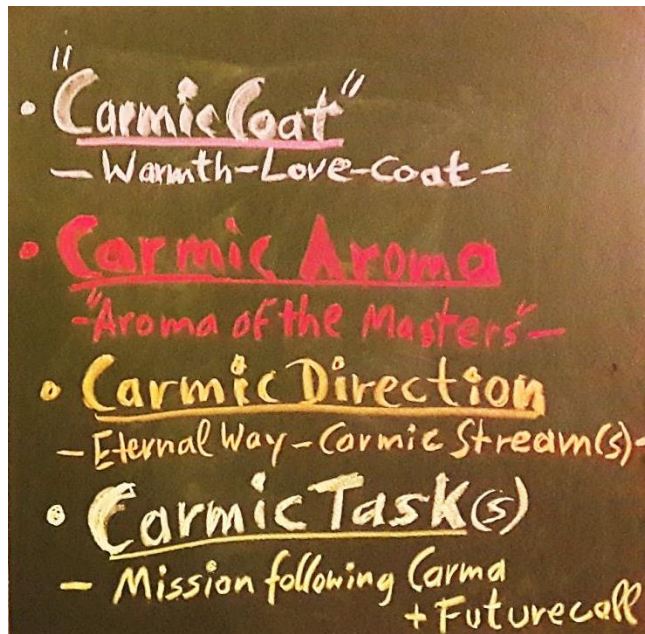 • "Carmic Coat"
- Warmth-Love-Coat -
• Carmic Aroma
-"Aroma of the Masters"-
• Carmic Direction
- Eternal Way - Carmic Stream(s)-
• Carmic Task(s)
- Mission following Carma
+ Futurecall